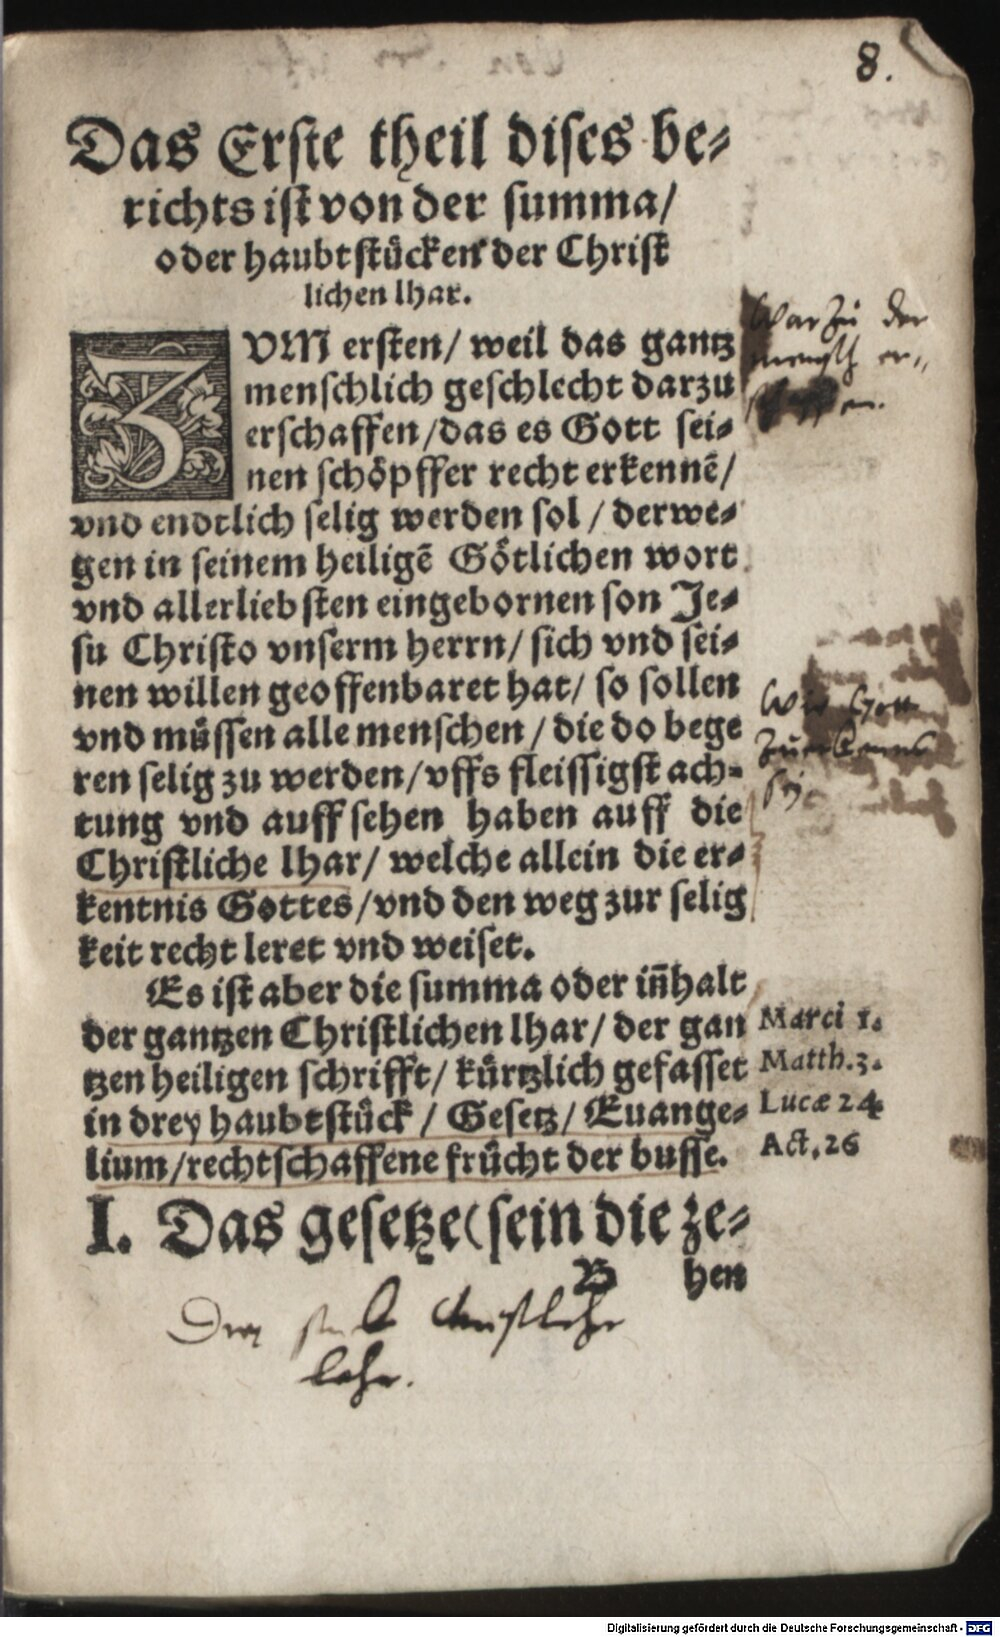 8.
Das Erste theil dises be⸗
richts ist von der summa/
oder haubtstücken der Christ
lichen lhar.
ZVM ersten/ weil das gantz
menschlich geschlecht darzu
erschaffen/das es Gott sei⸗
nen schöpffer recht erkennē/
vnd endtlich selig werden sol/ derwe⸗
gen in seinem heiligē Götlichen wort
vnd allerliebsten eingebornen son Je⸗
su Christo vnserm herrn/ sich vnd sei⸗
nen willen geoffenbaret hat/ so sollen
vnd müssen alle menschen/ die do bege
ren selig zu werden/vffs fleissigst ach⸗
tung vnd auff sehen haben auff die
Christliche lhar/ welche allein die er⸗
kentnis Gottes/vnd den weg zur selig
keit recht leret vnd weiset.
Es ist aber die summa oder iñhalt
der gantzen Christlichen lhar/ der gan
tzen heiligen schrifft/ kürtzlich gefasset
in drey haubtstück/ Gesetz/ Euange⸗
lium/rechtschaffene frücht der busse.
I. Das gesetze(sein die ze⸗
B hen
Warzu der
mensch er⸗
schaffen.
Wie Gott
zuerkennen
sey
Marci 1.
Matth.3.
Lucæ 24
Act.26
Drey stuck
lehr.
Digitalisierung gefördert durch die Deutsche Forschungsgemeinschaft - DFG